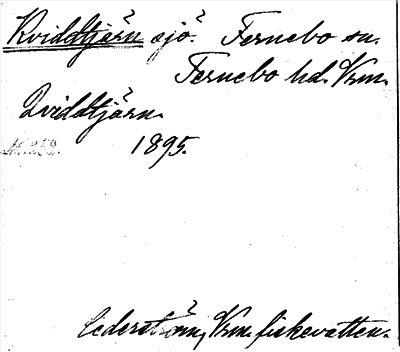 Kviddtjärn sjö. Fernebo sn.
Fernebo hd. Vrm.
Qviddtjärn.
1895.
Cederström, Vrm. fiskevatten.